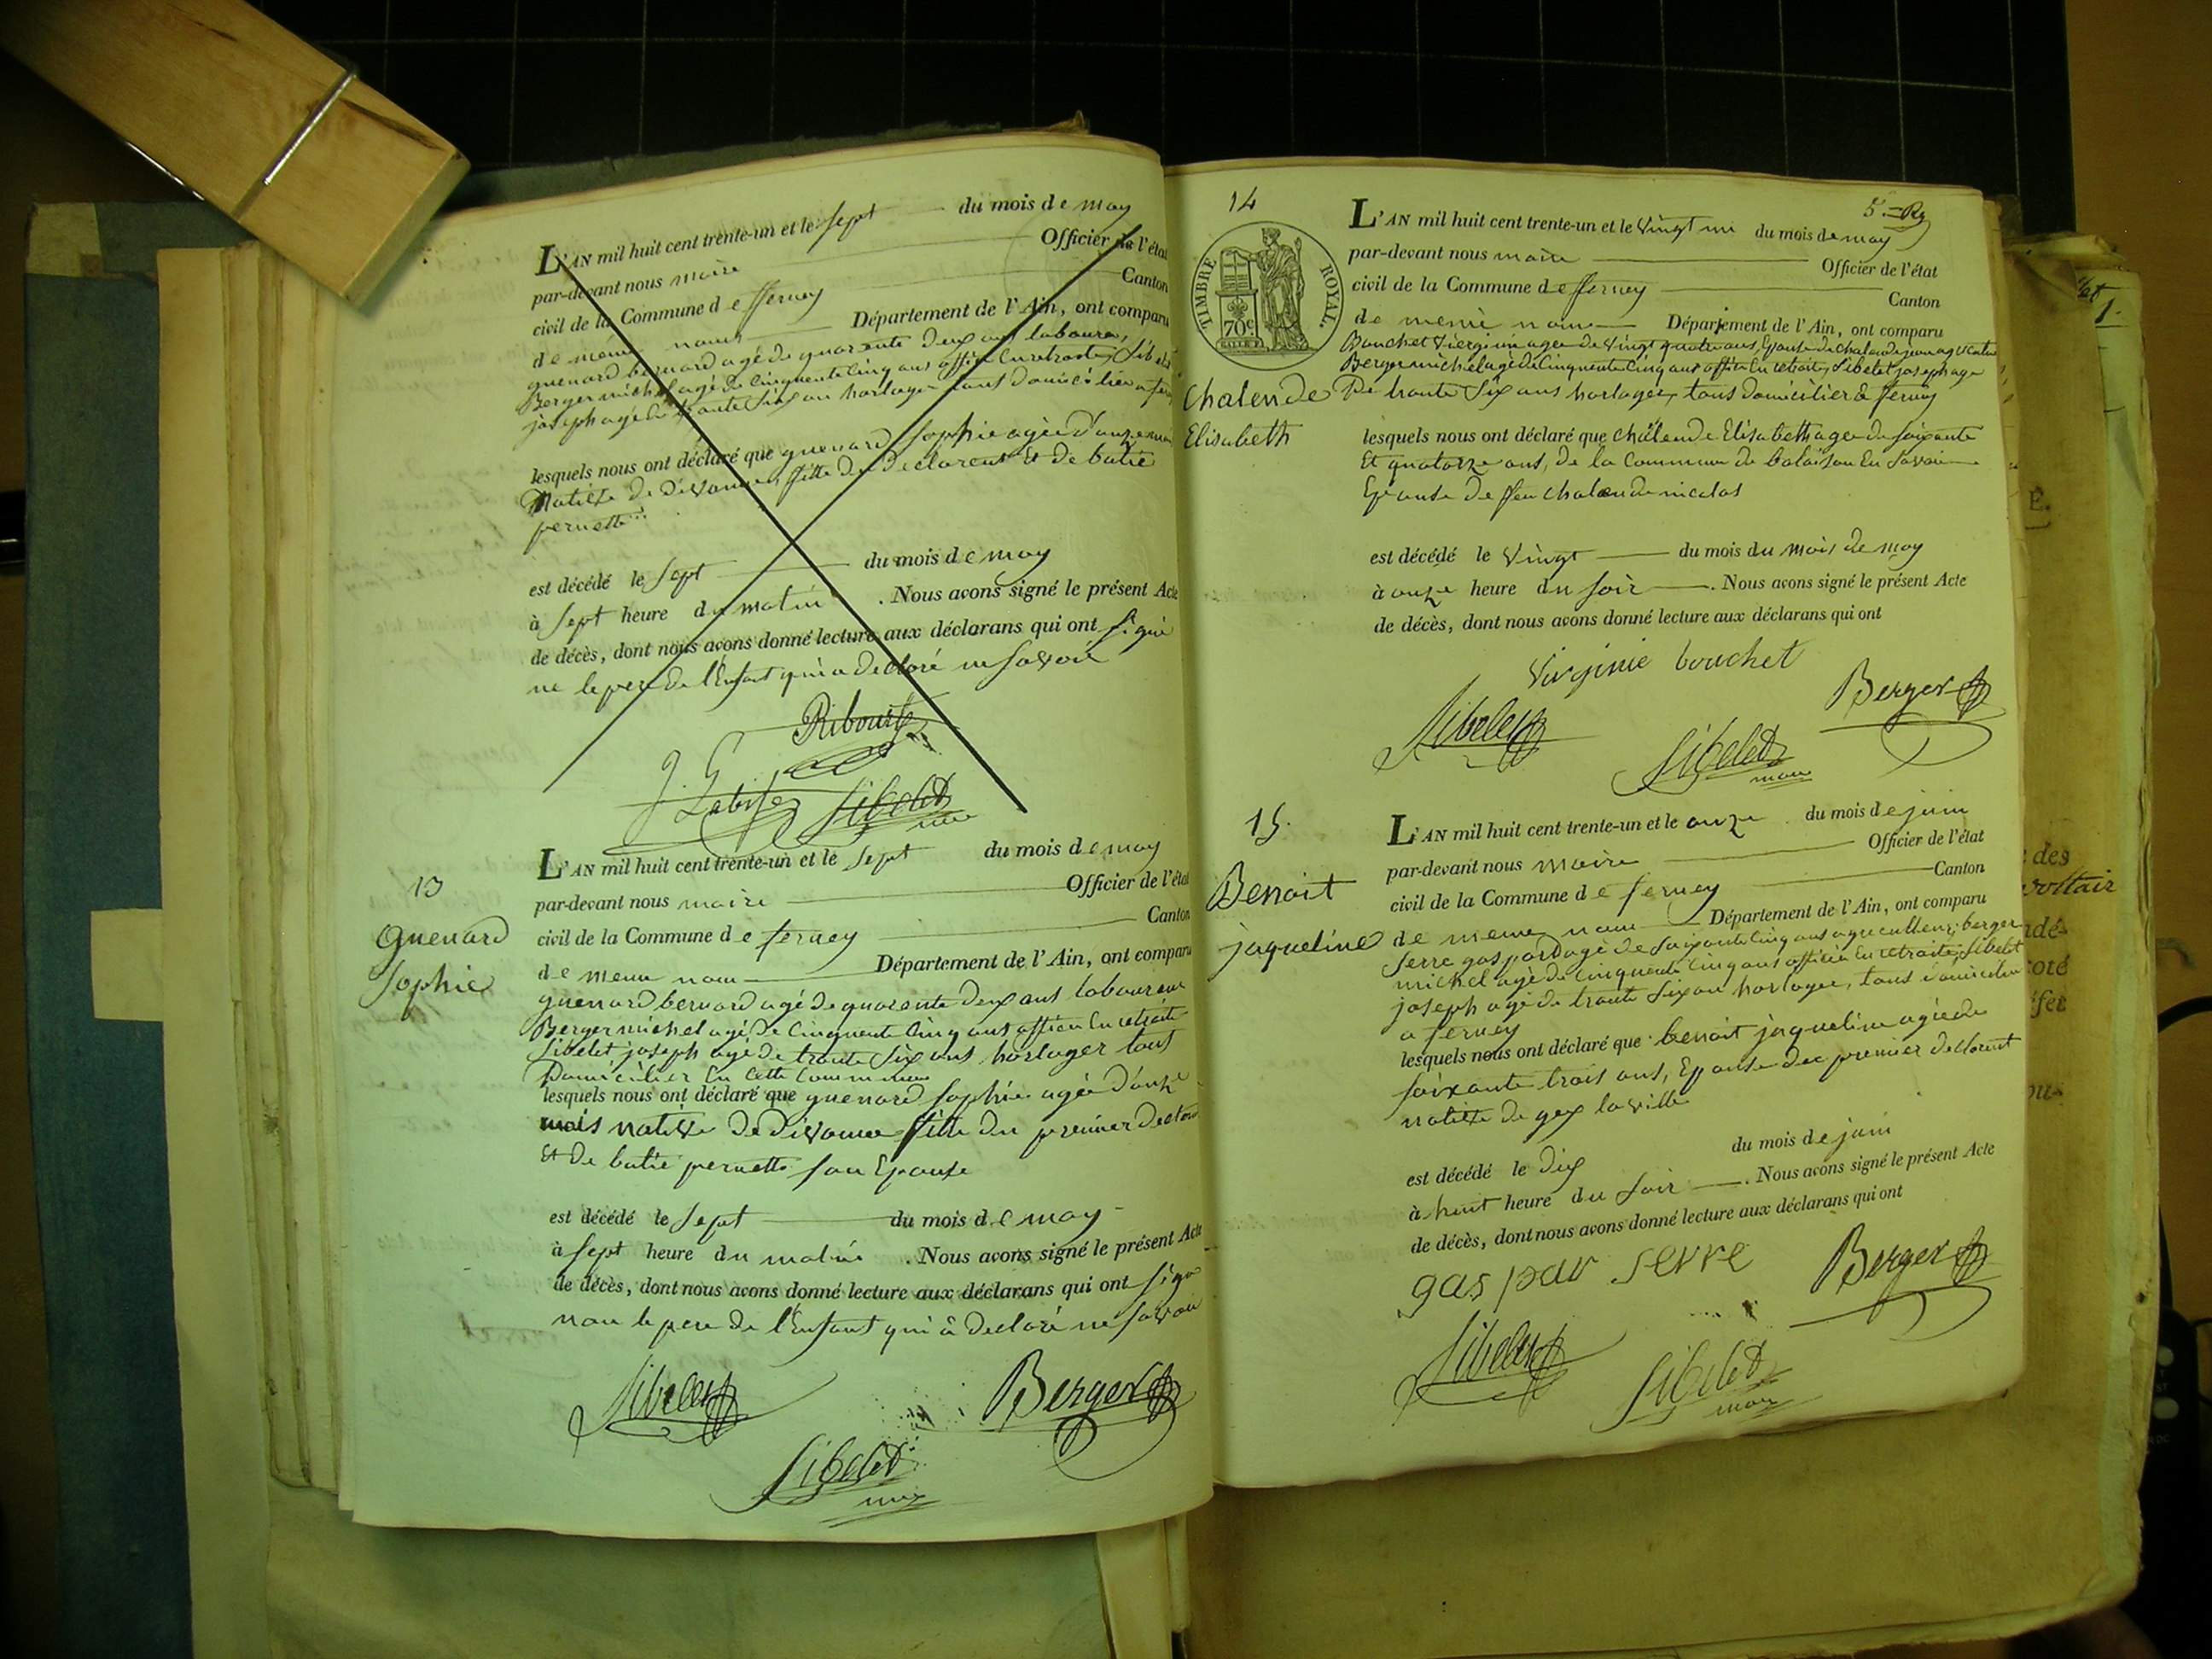 L'AN mil huit cent trente-un et le sept du mois de may
par-devant nous maire Officier de l'état
civil de la Commune de fferney Canton
de même nom Département de l'Ain, ont comparu
guenard bernard agé de quarente deux ans laboureur,
Berger michel agé de Cinquente Cinq ans officier En retraite, Sibelet
joseph agé de trante Six ans horloger tous domicilier a
lesquels nous ont déclaré que guenard Sophie agée d'onze mois
Native de divonne, fille du declarent Et de batié
pernette
est décédé le Sept du mois de may
à Sept heure du matin . Nous avons signé le présent Acte
de décès, dont nous avons donné lecture aux déclarans qui ont Signé
ne le pere de l'Enfant qui a declaré ne Savoir
Sibelet
13
Guenard
Sophie
L'AN mil huit cent trente-un et le Sept du mois de may
par-devant nous maire Officier de l'état
civil de la Commune de ferney Canton
de meme nom Département de l'Ain, ont comparu
guenard bernard agé de quarente deux ans laboureur
Berger michel agé de Cinquente Cinq ans officier En retraite
Sibelet joseph agé de trante Six ans horloger tous
Domicilier En cette Commune
lesquels nous ont déclaré que guenard Sophie agée d'onze
mois native de divonne fille du premier
Et de batié pernette Son Epouse
est décédé le Sept du mois de may
à Sept heure du matin . Nous avons signé le présent Acte
de décès, dont nous avons donné lecture aux déclarans qui ont Signé
non le pere de l'Enfant qui à declaré ne Savoir
Sibelet Berger
Sibelet
maire
14
5.
TIMBRE ROYAL.
70c.
Chalende
Elisabeth
L'AN mil huit cent trente-un et le Vingt un du mois de may
par-devant nous maire Officier de l'état
civil de la Commune de fferney Canton
de meme nom Département de l'Ain, ont comparu
Bouchet agée de Vingt quatre ans, Epouse de Chalende
Berger michel agé de Cinquente Cinq ans officier En retraite, Sibelet joseph age
De trante Six ans horloger, tous domicilier à ferney
lesquels nous ont déclaré que Chalende Elisabeth agee de soixante
Et quatorze ans, de la Commune de balaison En Savoie
Epouse de feu Chalende nicolas
est décédé le Vingt du mois du mois de may
à onze heure du Soir . Nous avons signé le présent Acte
de décès, dont nous avons donné lecture aux déclarans qui ont
Virginie bouchet
Sibelet Berger
Sibelet
maire
15.
Benoit
jaqueline
L'AN mil huit cent trente-un et le onze du mois de juin
par-devant nous maire Officier de l'état
civil de la Commune de ferney Canton
de meme nom Département de l'Ain, ont comparu
Serre gaspard agé de Soixante Cinq ans agriculteur, berger
michel agé de Cinquente Cinq ans officier En retraite, Sibelet
joseph agé de trante Six ans horloger, tous domicilier
a ferney
lesquels nous ont déclaré que benoit jaqueline agée de
soixante trois ans, Epouse du premier declarent
native de gex la ville
est décédé le dix du mois de juin
à huit heure du Soir . Nous avons signé le présent Acte
de décès, dont nous avons donné lecture aux déclarans qui ont
gaspar serre Berger
Sibelet Sibelet
maire
des
voltair